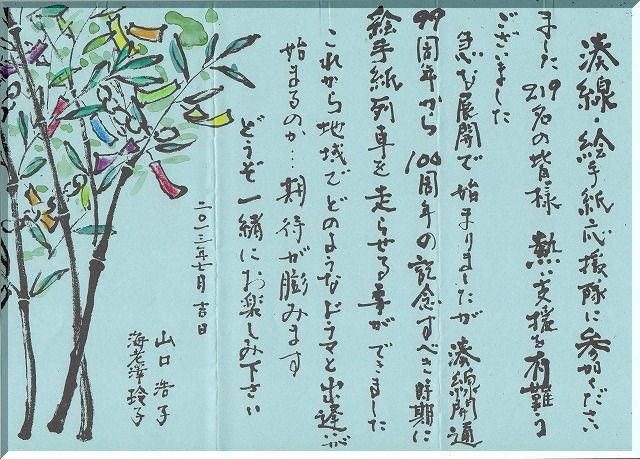 湊線・絵手紙応援隊に参加くださいました
219名の皆様 熱い支援を有難うございました
急な展開で始まりましたが 湊線開通
99周年から100周年の記念すべき時期に
絵手紙列車を走らせる事ができました
これから地域でどのようなドラマと出逢いが
始まるのか…期待が膨みます
どうぞ一緒にお楽しみ下さい
二〇一二年七月 吉日
山口浩子
海老澤玲子